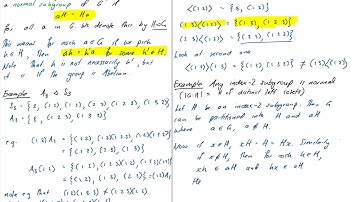 a normal subgroup of G if
aH = Ha
for all a in G. We denote this by H◁G.
This means for each a∈G if we pick
h∈H, then ah = h'a for some h'∈H.
Note that h is not necessarily h', but
it is if the group is Abelian.
Example: A₃ ◁ S₃
S₃ = {ε, (1 2), (1 3), (2 3), (1 2 3), (1 3 2)}
A₃ = {ε, (1 2 3), (1 3 2)}
e.g.
A₃(1 2) =
note eg that (1 2)(1 2 3) ≠ (1 2 3)(1 2)
⟨(1 2)⟩ = {ε, (1 2)}
(1 3)⟨(1 2)⟩ = {(1 3), (1 2 3)}
(2 3)⟨(1 2)⟩ =
Look at second one
⟨(1 2)⟩(1 3) = {(1 3), (1 3 2)} ≠ (1 3)⟨(1 2)⟩
Example: Any index-2 subgroup is normal
(|G:H| = # of distinct left cosets)
Let H be an index-2 subgroup. Then G
can be partitioned into H and aH
where a∈G, a∉H.
Now if x∈H, xH = H = Hx. Similarly
if x∉H, then for each h∈H,
xh ∈ aH and hx ∈ aH